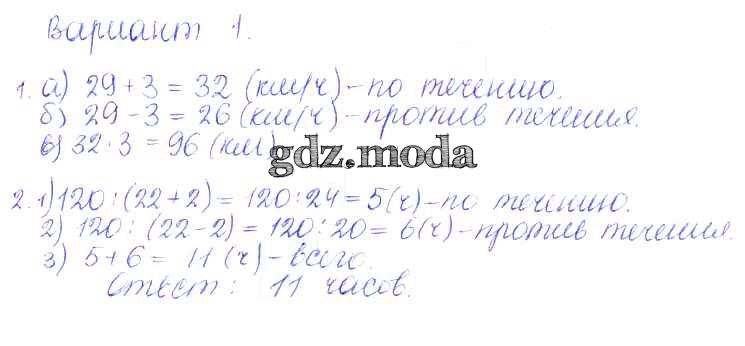 Вариант 1.
1. а) 29 + 3 = 32 (км/ч) - по течению.
б) 29 - 3 = 26 (км/ч) - против течения.
в) 32 · 3 = 96 (км)
gdz.moda
2. 1) 120 : (22 + 2) = 120 : 24 = 5 (ч) - по течению.
2) 120 : (22 - 2) = 120 : 20 = 6 (ч) - против течения.
3) 5 + 6 = 11 (ч) - всего.
Ответ : 11 часов.